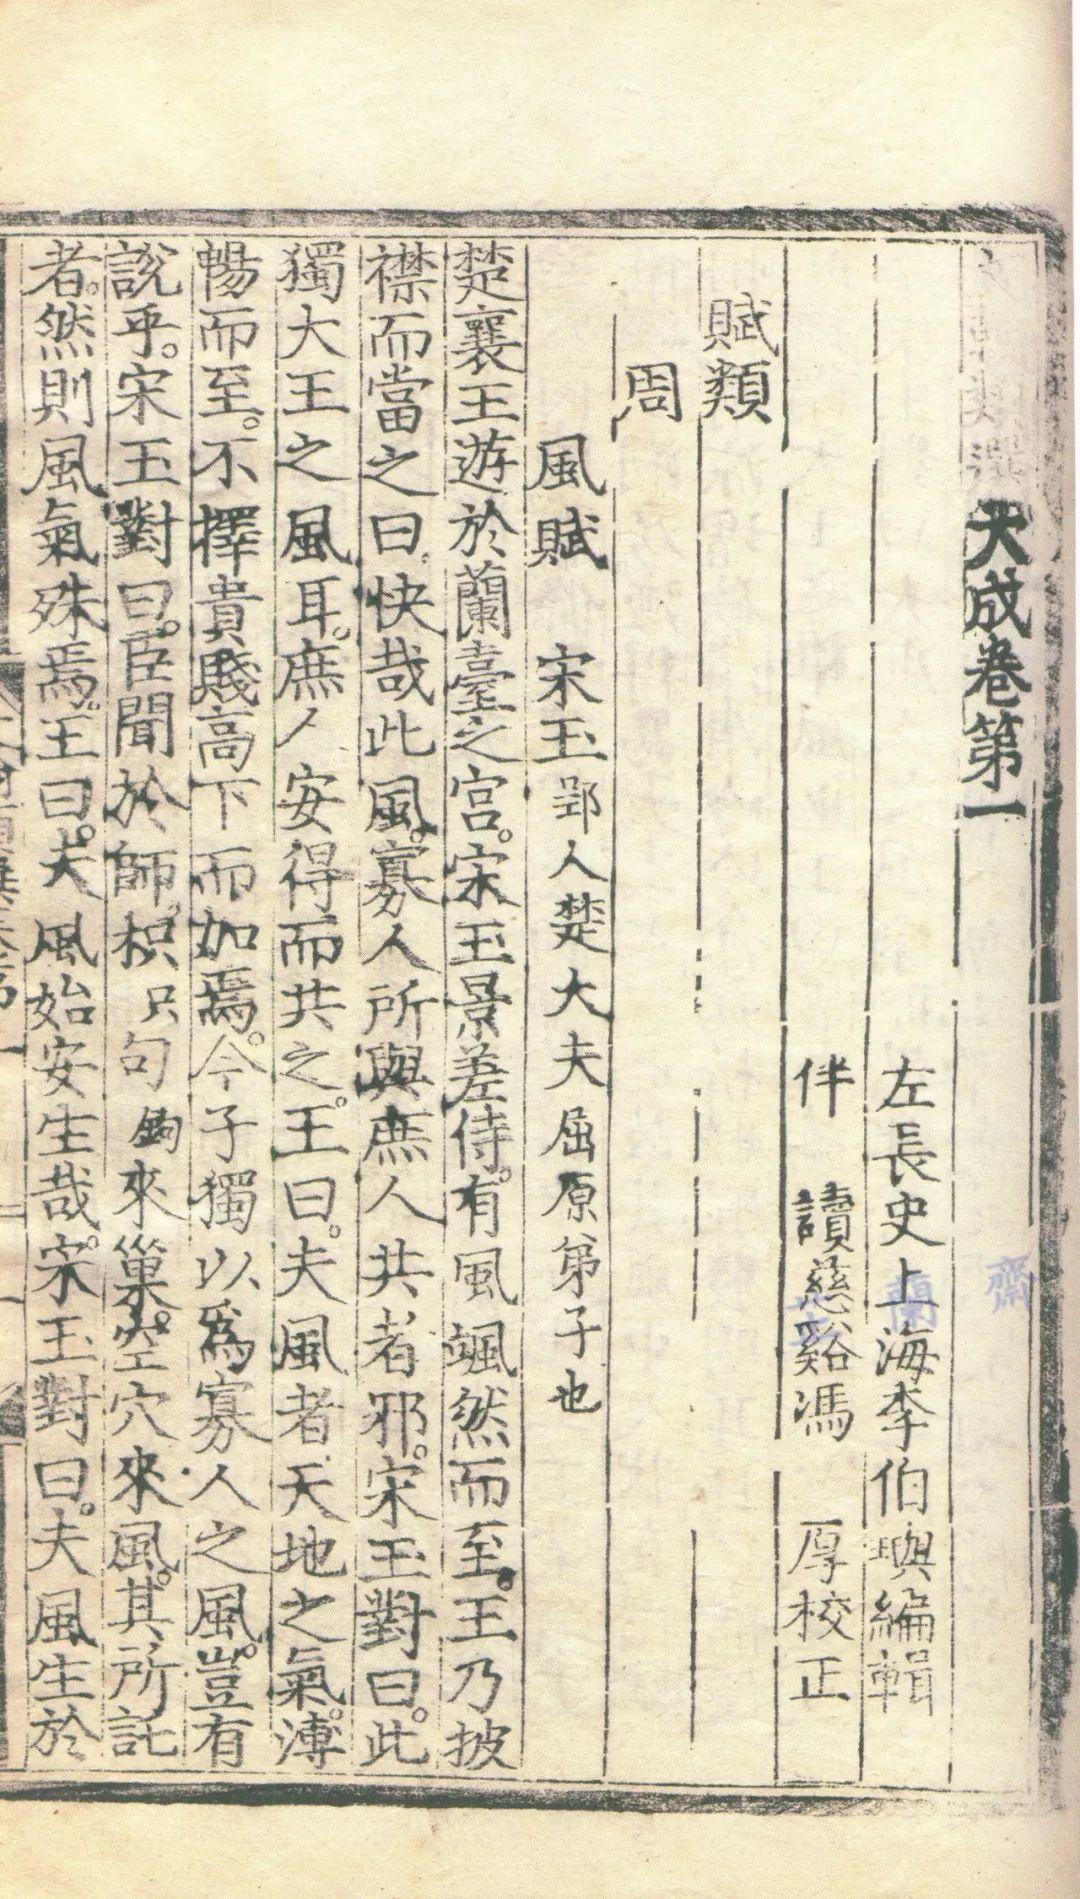 天成卷第一
左長史上海李伯璵編輯
伴 讀慈谿馮 厚校正
賦類
周
風賦 宋玉 郢人楚大夫屈原弟子也
楚襄王遊於蘭臺之宮。宋玉景差侍。有風颯然而至。王乃披
襟而當之曰。快哉此風。寡人所與庶人共者邪。宋玉對曰。此
獨大王之風耳。庶人安得而共之。王曰。夫風者天地之氣。溥
暢而至。不擇貴賤高下而加焉。今子獨以爲寡人之風。豈有
說乎。宋玉對曰。臣聞於師。枳 只 句 鉤 來巢。空穴來風。其所託
者。然則風氣殊焉。王曰。夫風始安生哉。宋玉對曰。夫風生於
齋
蘭